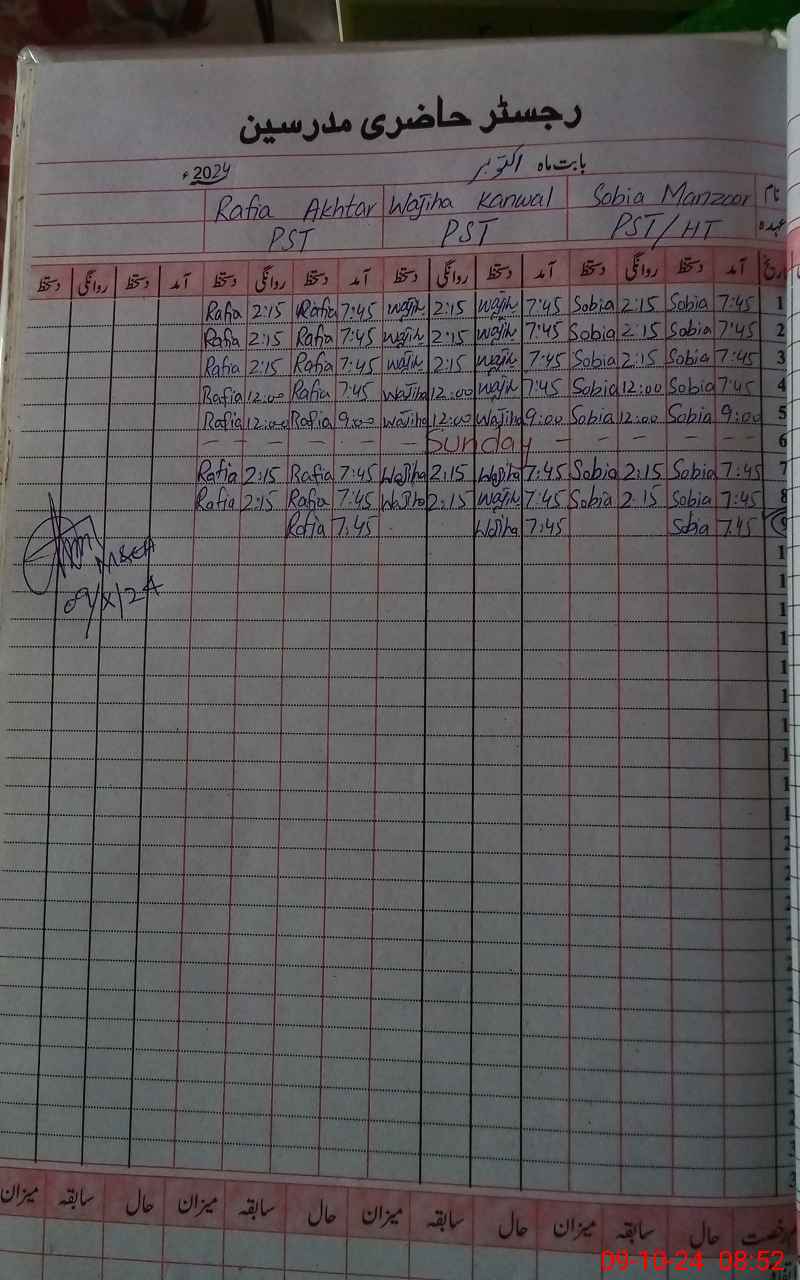 رجسٹر حاضری مدرسین
بابت ماہ اکتوبر 2024ء
نام Sobia Manzoor Wajiha Kanwal Rafia Akhtar
عہدہ PST/HT PST PST
تاریخ آمد دستخط روانگی دستخط آمد دستخط روانگی دستخط آمد دستخط روانگی دستخط آمد دستخط روانگی دستخط
1 7:45 Sobia 2:15 Sobia 7:45 Wajih 2:15 Wajih 7:45 Rafia 2:15 Rafia
2 7:45 Sobia 2:15 Sobia 7:45 Wajih 2:15 Wajih 7:45 Rafia 2:15 Rafia
3 7:45 Sobia 2:15 Sobia 7:45 Wajih 2:15 Wajih 7:45 Rafia 2:15 Rafia
4 7:45 Sobia 12:00 Sobia 7:45 Wajih 12:00 Wajiha 7:45 Rafia 12:00 Rafia
5 9:00 Sobia 12:00 Sobia 9:00 Wajiha 12:00 Wajiha 9:00 Rafia 12:00 Rafia
6 - - - Sunday - - - - -
7 7:45 Sobia 2:15 Sobia 7:45 Wajiha 2:15 Wajiha 7:45 Rafia 2:15 Rafia
8 7:45 Sobia 2:15 Sobia 7:45 Wajih 2:15 Wajiha 7:45 Rafia 2:15 Rafia
9 7:45 Sobia 7:45 Wajiha 7:45 Rafia
09/X/24
رخصت حال سابقہ میزان حال سابقہ میزان حال سابقہ میزان حال سابقہ میزان
09-10-24 08:52